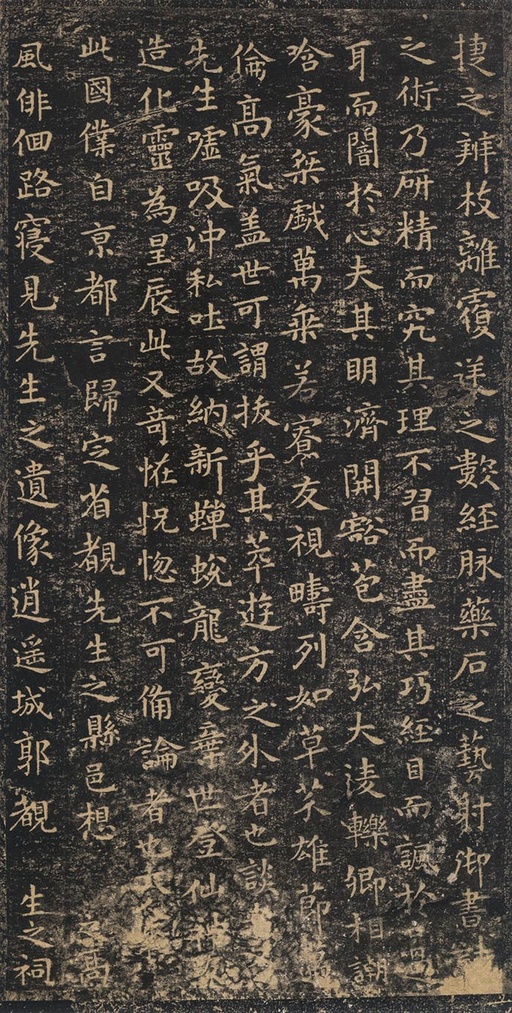 捷之辨枝離覆逆之數經脉藥石之藝射御書計
之術乃研精而究其理不習而盡其巧經目而諷於口過
耳而闇於心夫其明濟開豁苞含弘大淩轢卿相謿
哈豪桀戲萬乘若寮友視疇列如草芥雄節邁
倫髙氣盖世可謂拔乎其萃遊方之外者也談者又
先生噓吸沖和吐故納新蟬蛻龍變弃世登仙神友
造化靈為星辰此又竒恠恍惚不可俻論者也大人
此國僕自亰都言歸定省覩先生之縣邑想 髙
風俳佪路寢見先生之遺像逍遥城郭覩 生之祠